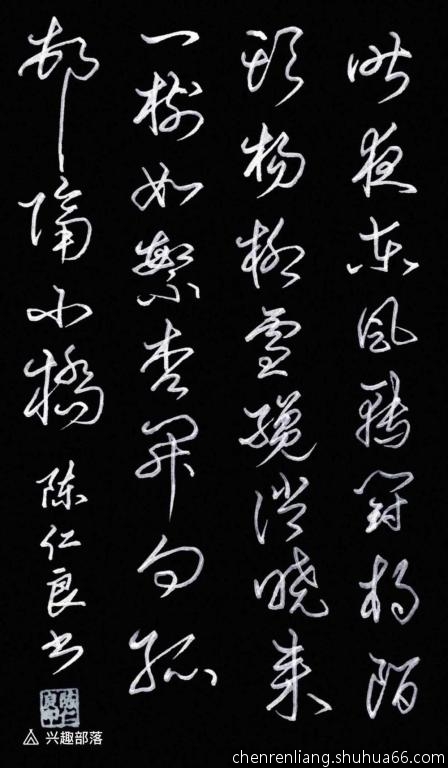 昨夜东风转鬥杓陌
头杨柳雪纔消晓来
一树如繁杏开向孤
邨隔小桥
陈仁良书
兴趣部落
chenrenliang.shuhua66.com